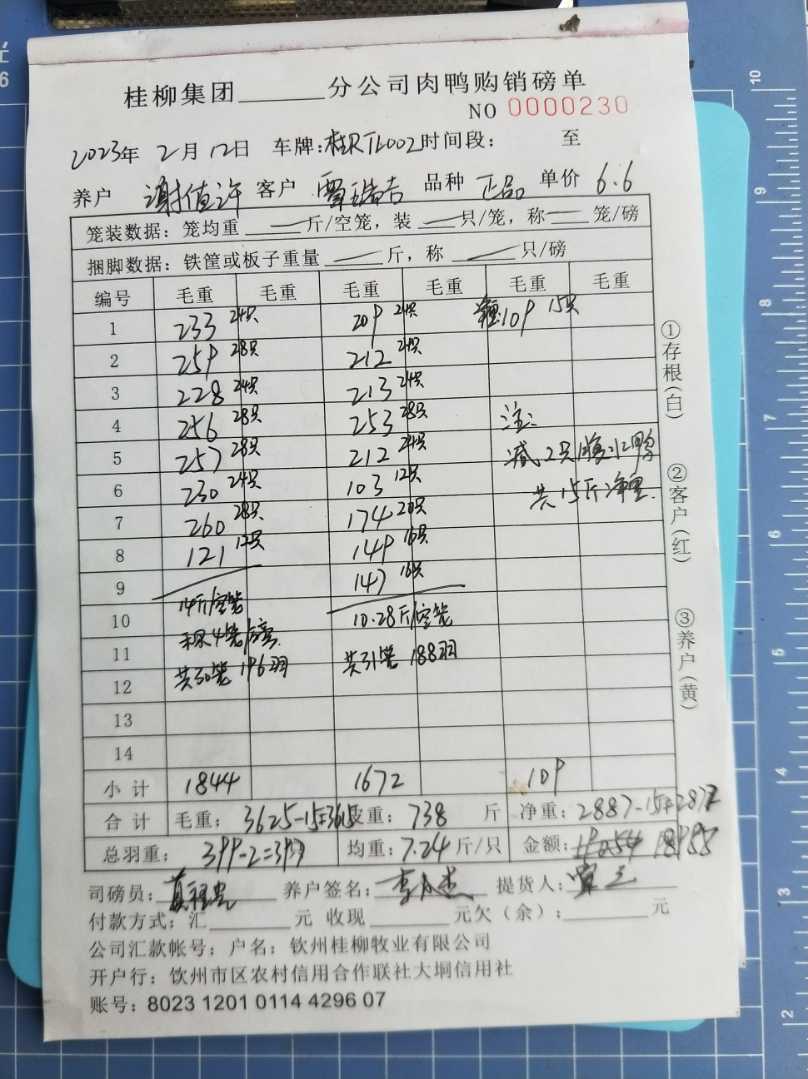 桂柳集团______分公司肉鸭购销磅单
NO 0000230
2023年 2月 12日 车牌:桂R 时间段: 至
养户 谢值许 客户 覃瑞吉 品种 正品 单价 6.6
笼装数据：笼均重 斤/空笼，装 只/笼，称 笼/磅
捆脚数据：铁筐或板子重量 斤，称 只/磅
编号 毛重 毛重 毛重 毛重 毛重 毛重
1 233 24只 209 24只 109 15只
2 259 28只 212 24只
3 228 24只 213 24只
4 256 28只 253 28只 注:
5 257 28只 212 24只 减2只 水鸭
6 230 24只 103 12只 共15斤净重
7 260 28只 174 20只
8 121 12只 149 16只
9 147 16只
10 14斤/空笼 10.28斤/空笼
11 4笼 共31笼 188羽
12 共50笼 196羽
13
14
小计 1844 1672 109
合计 毛重: 3625-15= 皮重: 738 斤 净重: 2887-15=2872
总羽重: 399-2=397 均重: 7.24斤/只 金额: 18955
司磅员: 养户签名: 提货人:
付款方式：汇________元 收现________元欠（余）:________元
公司汇款帐号：户名：钦州桂柳牧业有限公司
开户行：钦州市区农村信用合作联社大垌信用社
账号：8023 1201 0114 4296 07
①存根(白)
②客户(红)
③养户(黄)
10
9
8
7
6
5
4
3
2
6